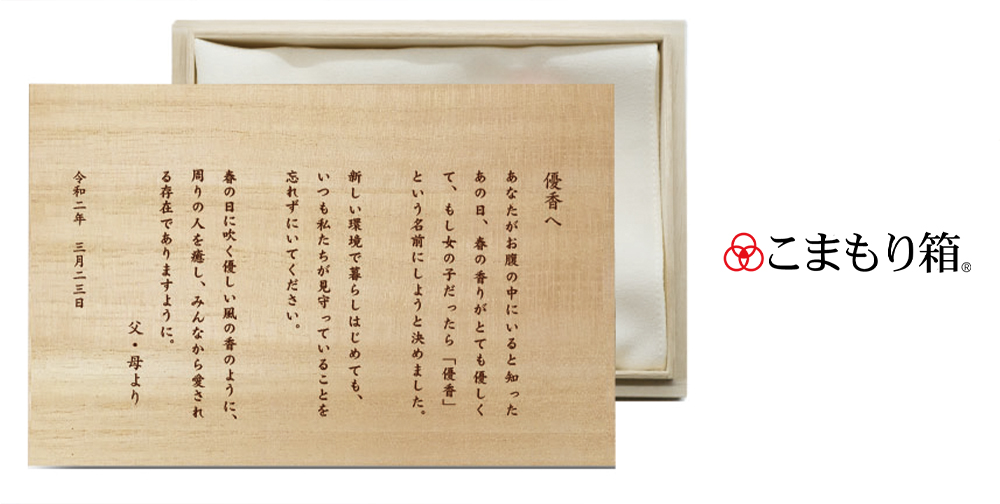 優香へ
あなたがお腹の中にいると知った
あの日、春の香りがとても優しく
て、もし女の子だったら「優香」
という名前にしようと決めました。
新しい環境で暮らしはじめても、
いつも私たちが見守っていることを
忘れずにいてください。
春の日に吹く優しい風の香のように、
周りの人を癒し、みんなから愛され
る存在でありますように。
父・母より
令和二年 三月二三日
こまもり箱®